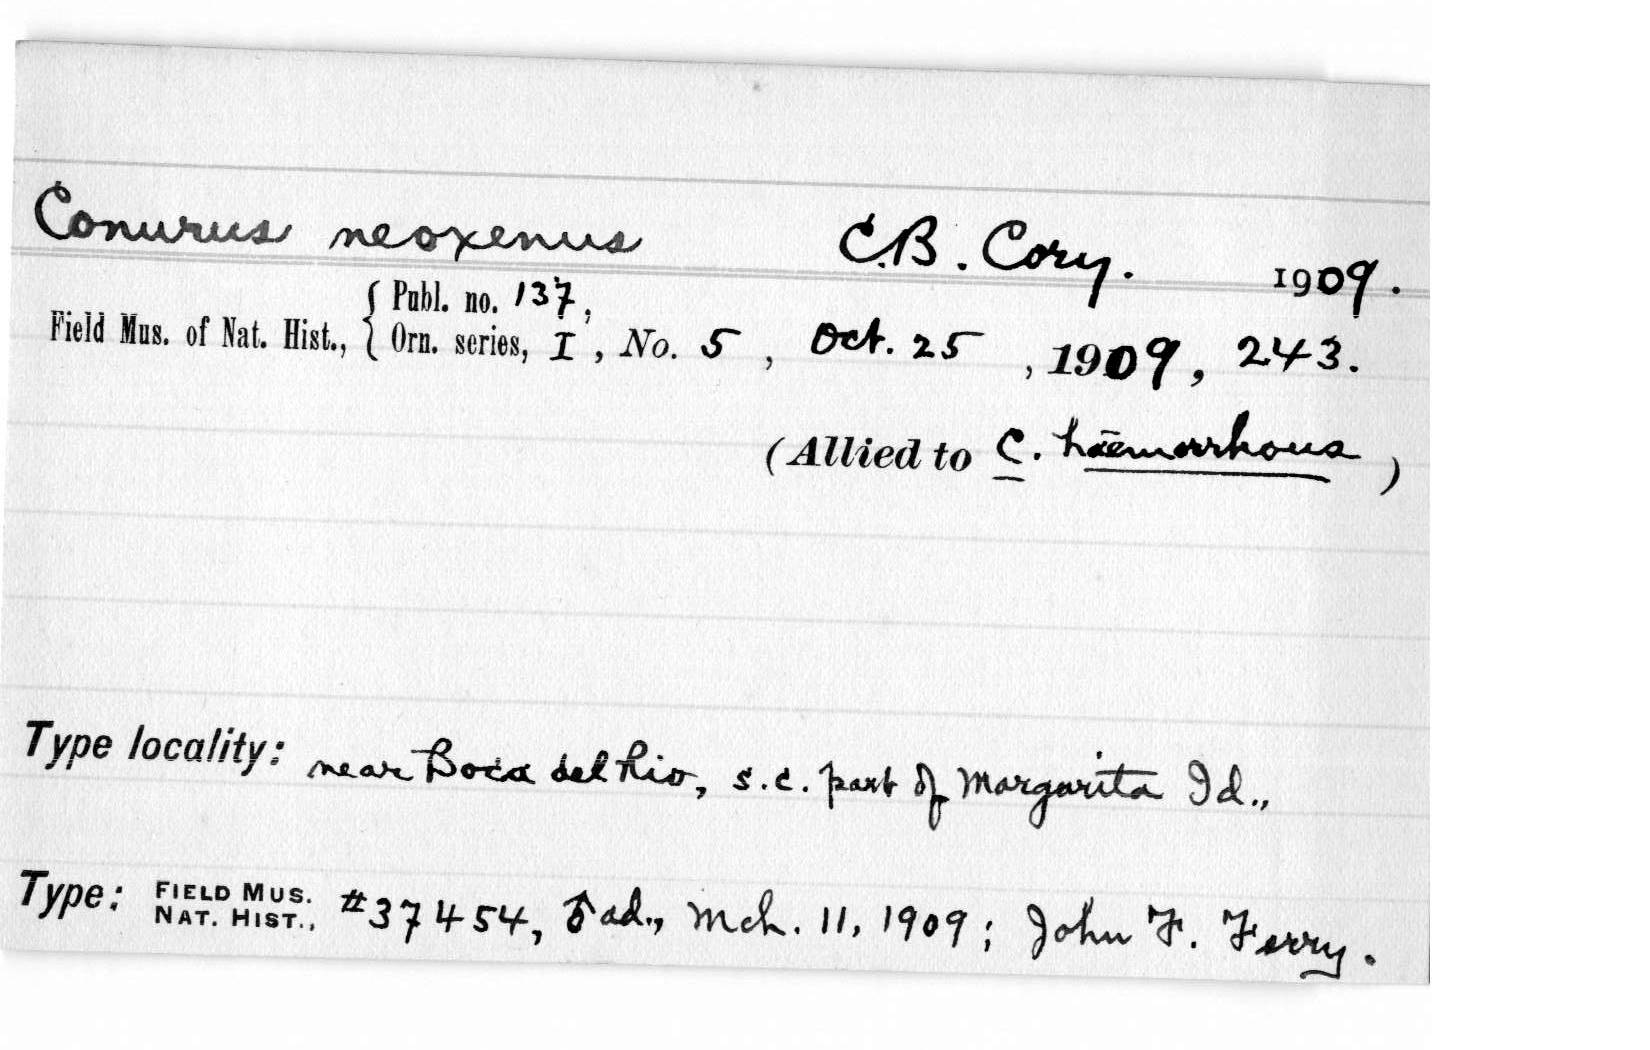 Conurus neoxenus C.B. Cory. 1909.
Field Mus. of Nat. Hist., { Publ. no. 137,
Orn. series, I, No. 5, Oct. 25, 1909, 243.
(Allied to C. hæmorrhous)
Type locality: near Boca del Rio, s.c. part of Margarita Id.,
Type: FIELD MUS. NAT. HIST., #37454, ♂ ad., Mch. 11, 1909; John F. Ferry.